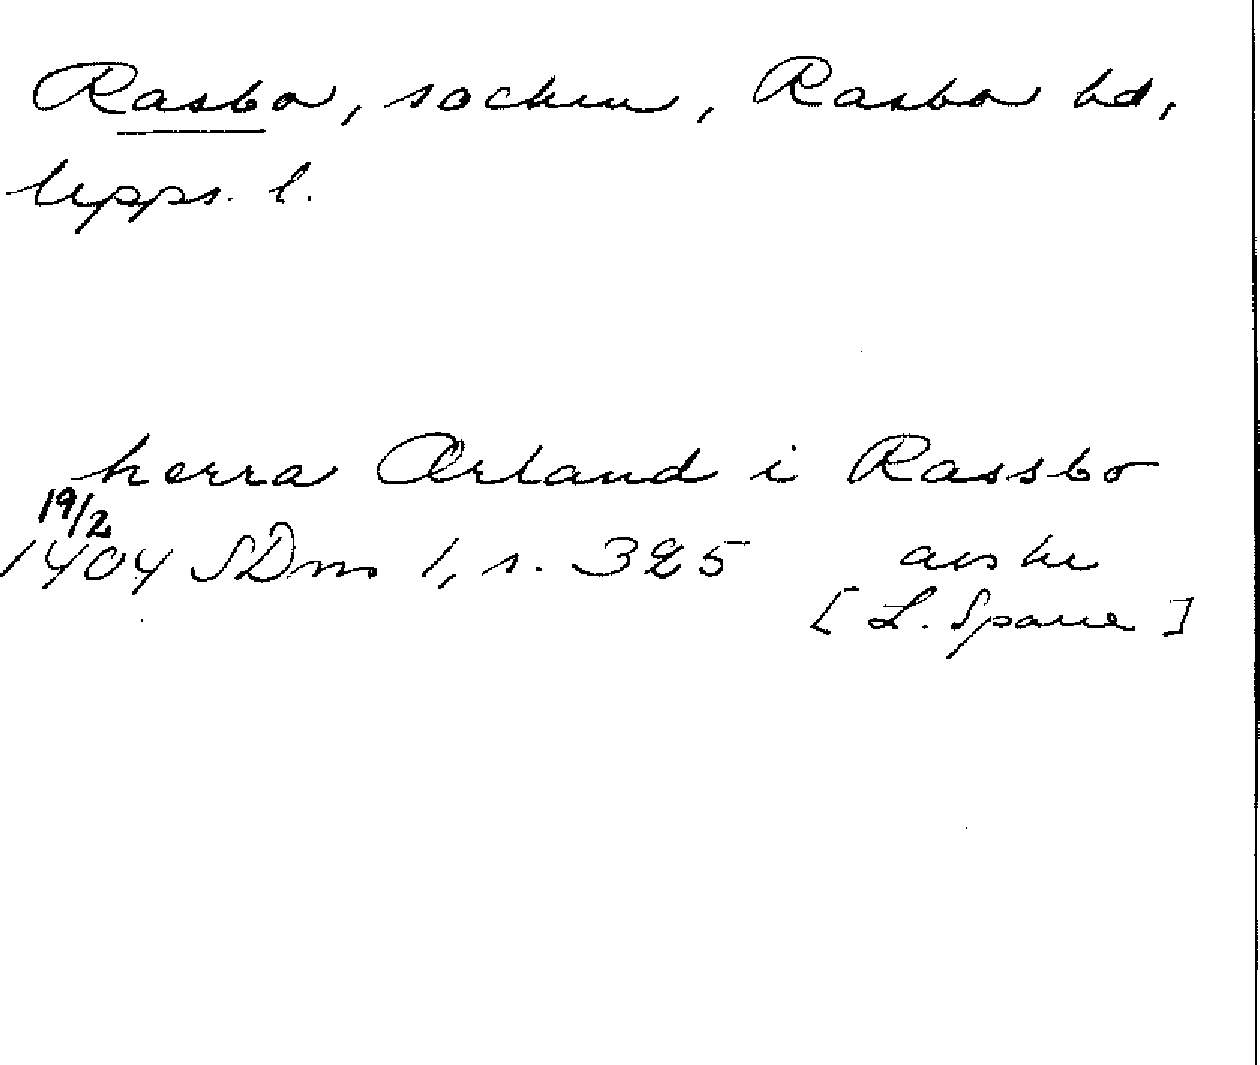 Rasbo, socken, Rasbo hd,
Upps. l.
herra Ærland i Rassbo
19/2
1404 SDns 1, s. 325 avskr
[L. Sparre]